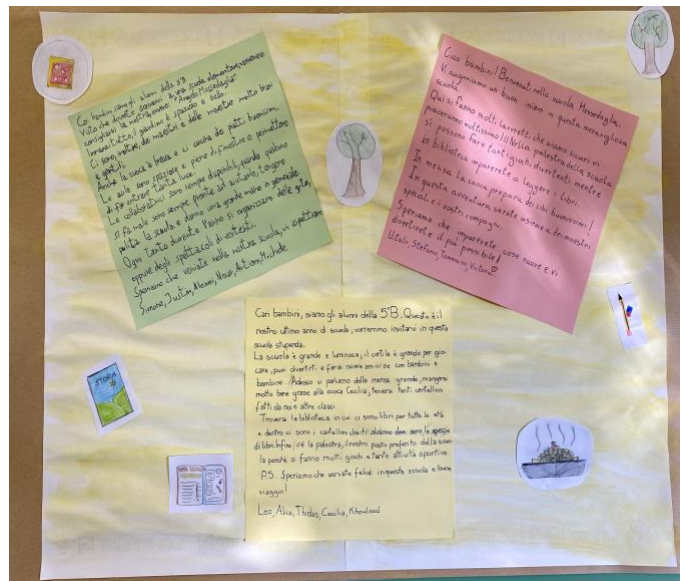 Cari bambini, siamo gli alunni della 5ªB.
Visto che dovrete iscrivervi a una scuola elementare, vorremmo
consigliarvi la nostra, ovvero "Angelo Messedaglia"
Innanzitutto il giardino è spazioso e bello.
Ci sono, inoltre, dei maestri e delle maestre molto bravi
e gentili.
Anche la cuoca è brava e ci cucina dei piatti buonissimi.
Le aule sono spaziose e piene di finestre e permettono
di far entrare tanta luce.
Le collaboratrici sono sempre disponibili, quando qualcuno
si fa male sono sempre pronte ad aiutarlo, tengono
pulita la scuola e danno una grande mano in generale.
Ogni tanto durante l'anno si organizzano delle gite,
oppure degli spettacoli divertenti.
Speriamo che veniate nella nostra scuola, vi aspettiamo
Simone, Justin, Alexei, Michele
Ciao bambini! Benvenuti nella scuola Messedaglia.
Vi auguriamo un buon inizio in questa meravigliosa
scuola
Qui si fanno molti lavoretti che siamo sicuri vi
piaceranno moltissimo!! Nella palestra della scuola
si possono fare tanti giochi divertenti mentre
in biblioteca imparerete a leggere i libri.
In mensa la cuoca prepara dei cibi buonissimi!
In questa avventura sarete insieme a dei maestri
speciali e i vostri compagni.
Speriamo che imparerete cose nuove e vi
divertirete il più possibile!
Stefano, Tommaso, Vittoria
Cari bambini, siamo gli alunni della 5ªB. Questo è il
nostro ultimo anno di scuola, vorremmo invitarvi in questa
scuola stupenda.
La scuola è grande e luminosa, il cortile è grande per gio-
care, puoi divertirti e farai nuove amicizie con bambini e
bambine. Adesso vi parliamo della mensa: grande, mangerai
molto bene grazie alla cuoca Cecilia, troverai tanti cartelloni
fatti da noi e altre classi.
Troverai la biblioteca in cui ci sono libri per tutte le età
e dentro ci sono i cartelloni che ti dove sono le specie
di libri. Infine, c'è la palestra, il nostro posto preferito della scuo-
la perché si fanno molti giochi e tante attività sportive.
P.S. Speriamo che veniate felici in questa scuola e buon
viaggio!
Leo, Alice, Cecilia, Khouloud
STORIA